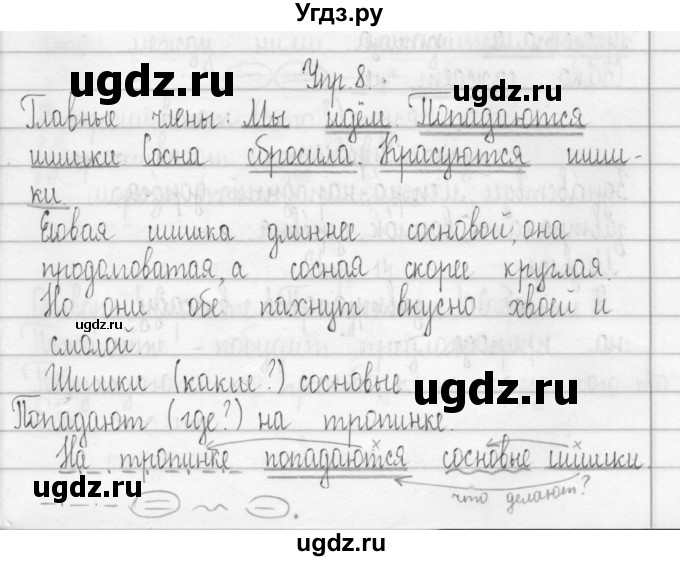 Угдз.ру
Упр 8.
Главные члены Мы идём Попадаются
шишки Сосна сбросила Красуются шиш-
ки.
Еловая шишка длиннее сосновой, она
продолговатая, а сосная скорее круглая.
Но они обе пахнут вкусно хвоей и
смолой.
Шишки (какие?) сосновые
Попадают (где?) на тропинке.
На тропинке попадаются сосновые шишки.
что делают?
ugdz.ru
ugdz.ru
ugdz.ru
ugdz.ru
ugdz.ru
ugdz.ru
ugdz.ru
ugdz.ru
ugdz.ru